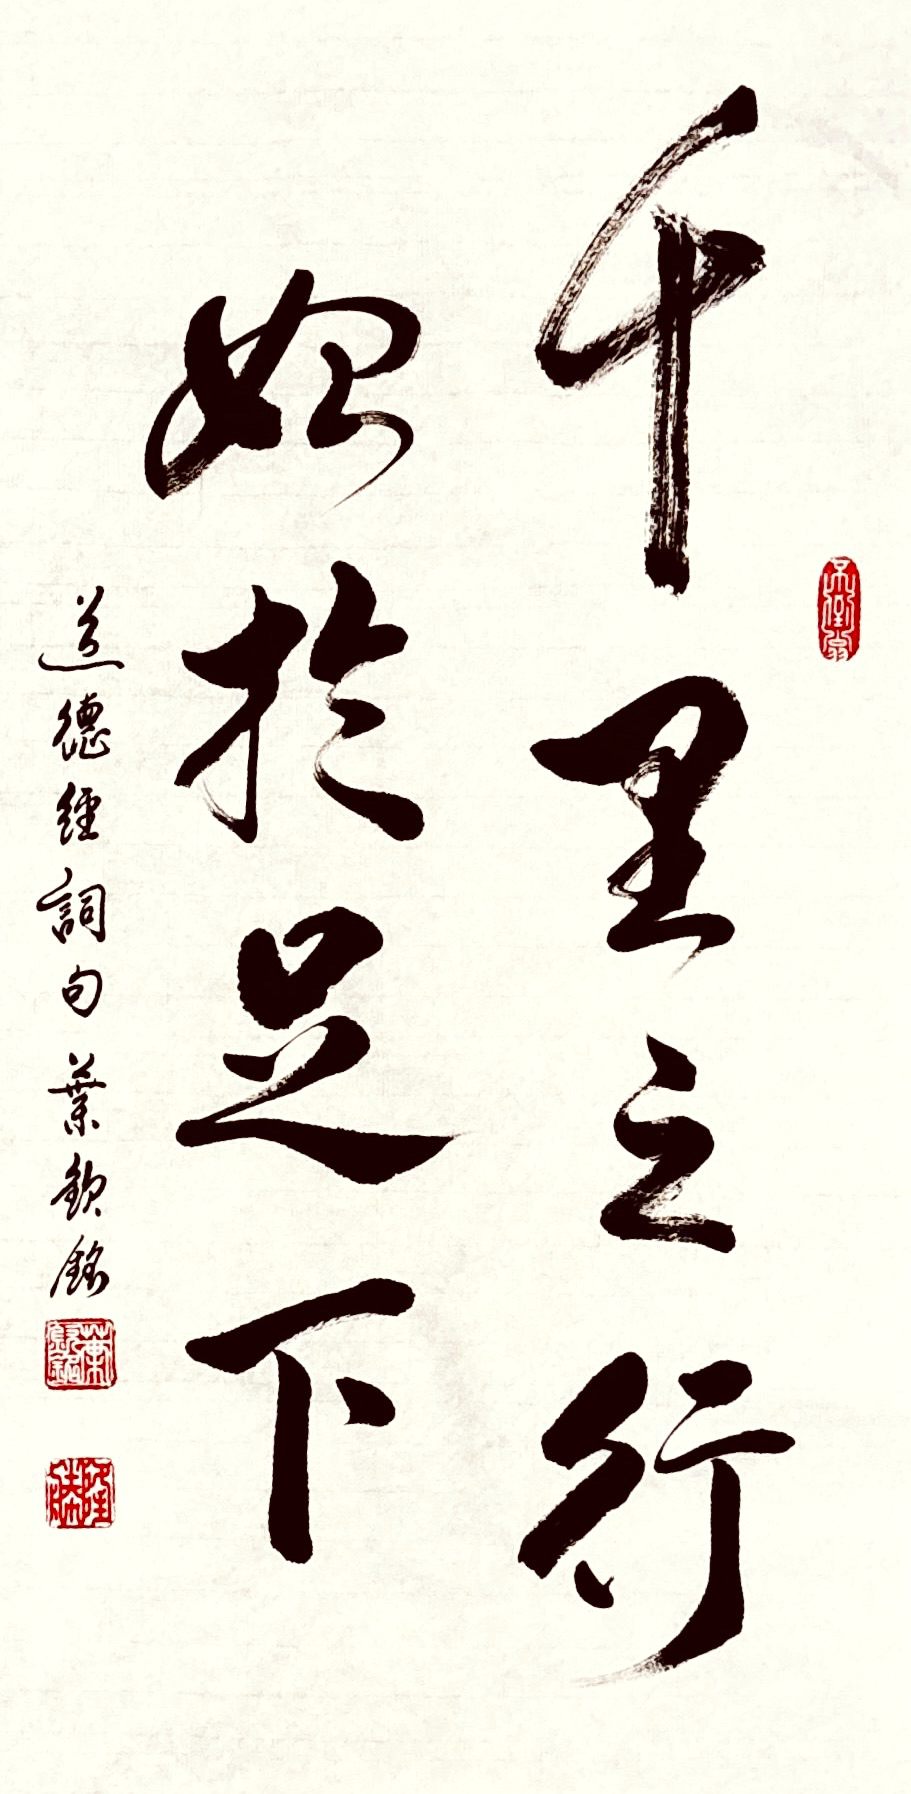 千里之行
始於足下
道德經詞句 葉欽銘